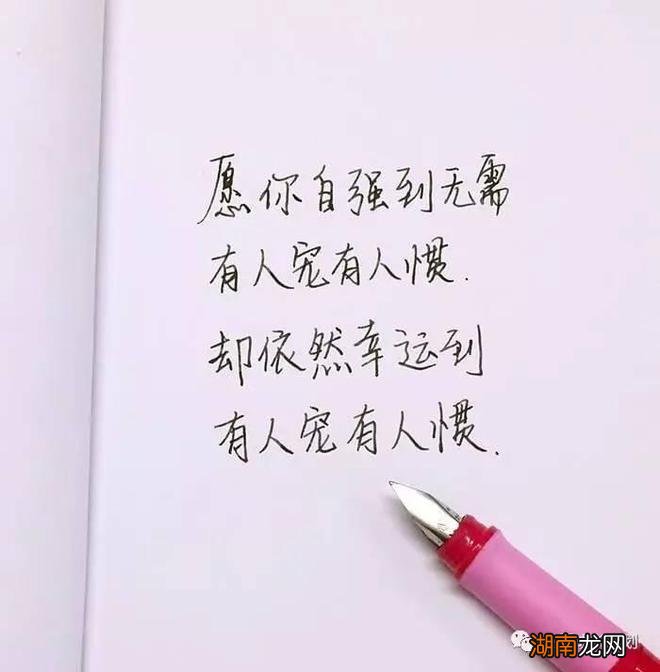 愿你自强到无需
有人宠有人惯.
却依然幸运到
有人宠有人惯.
湖南龙网
划